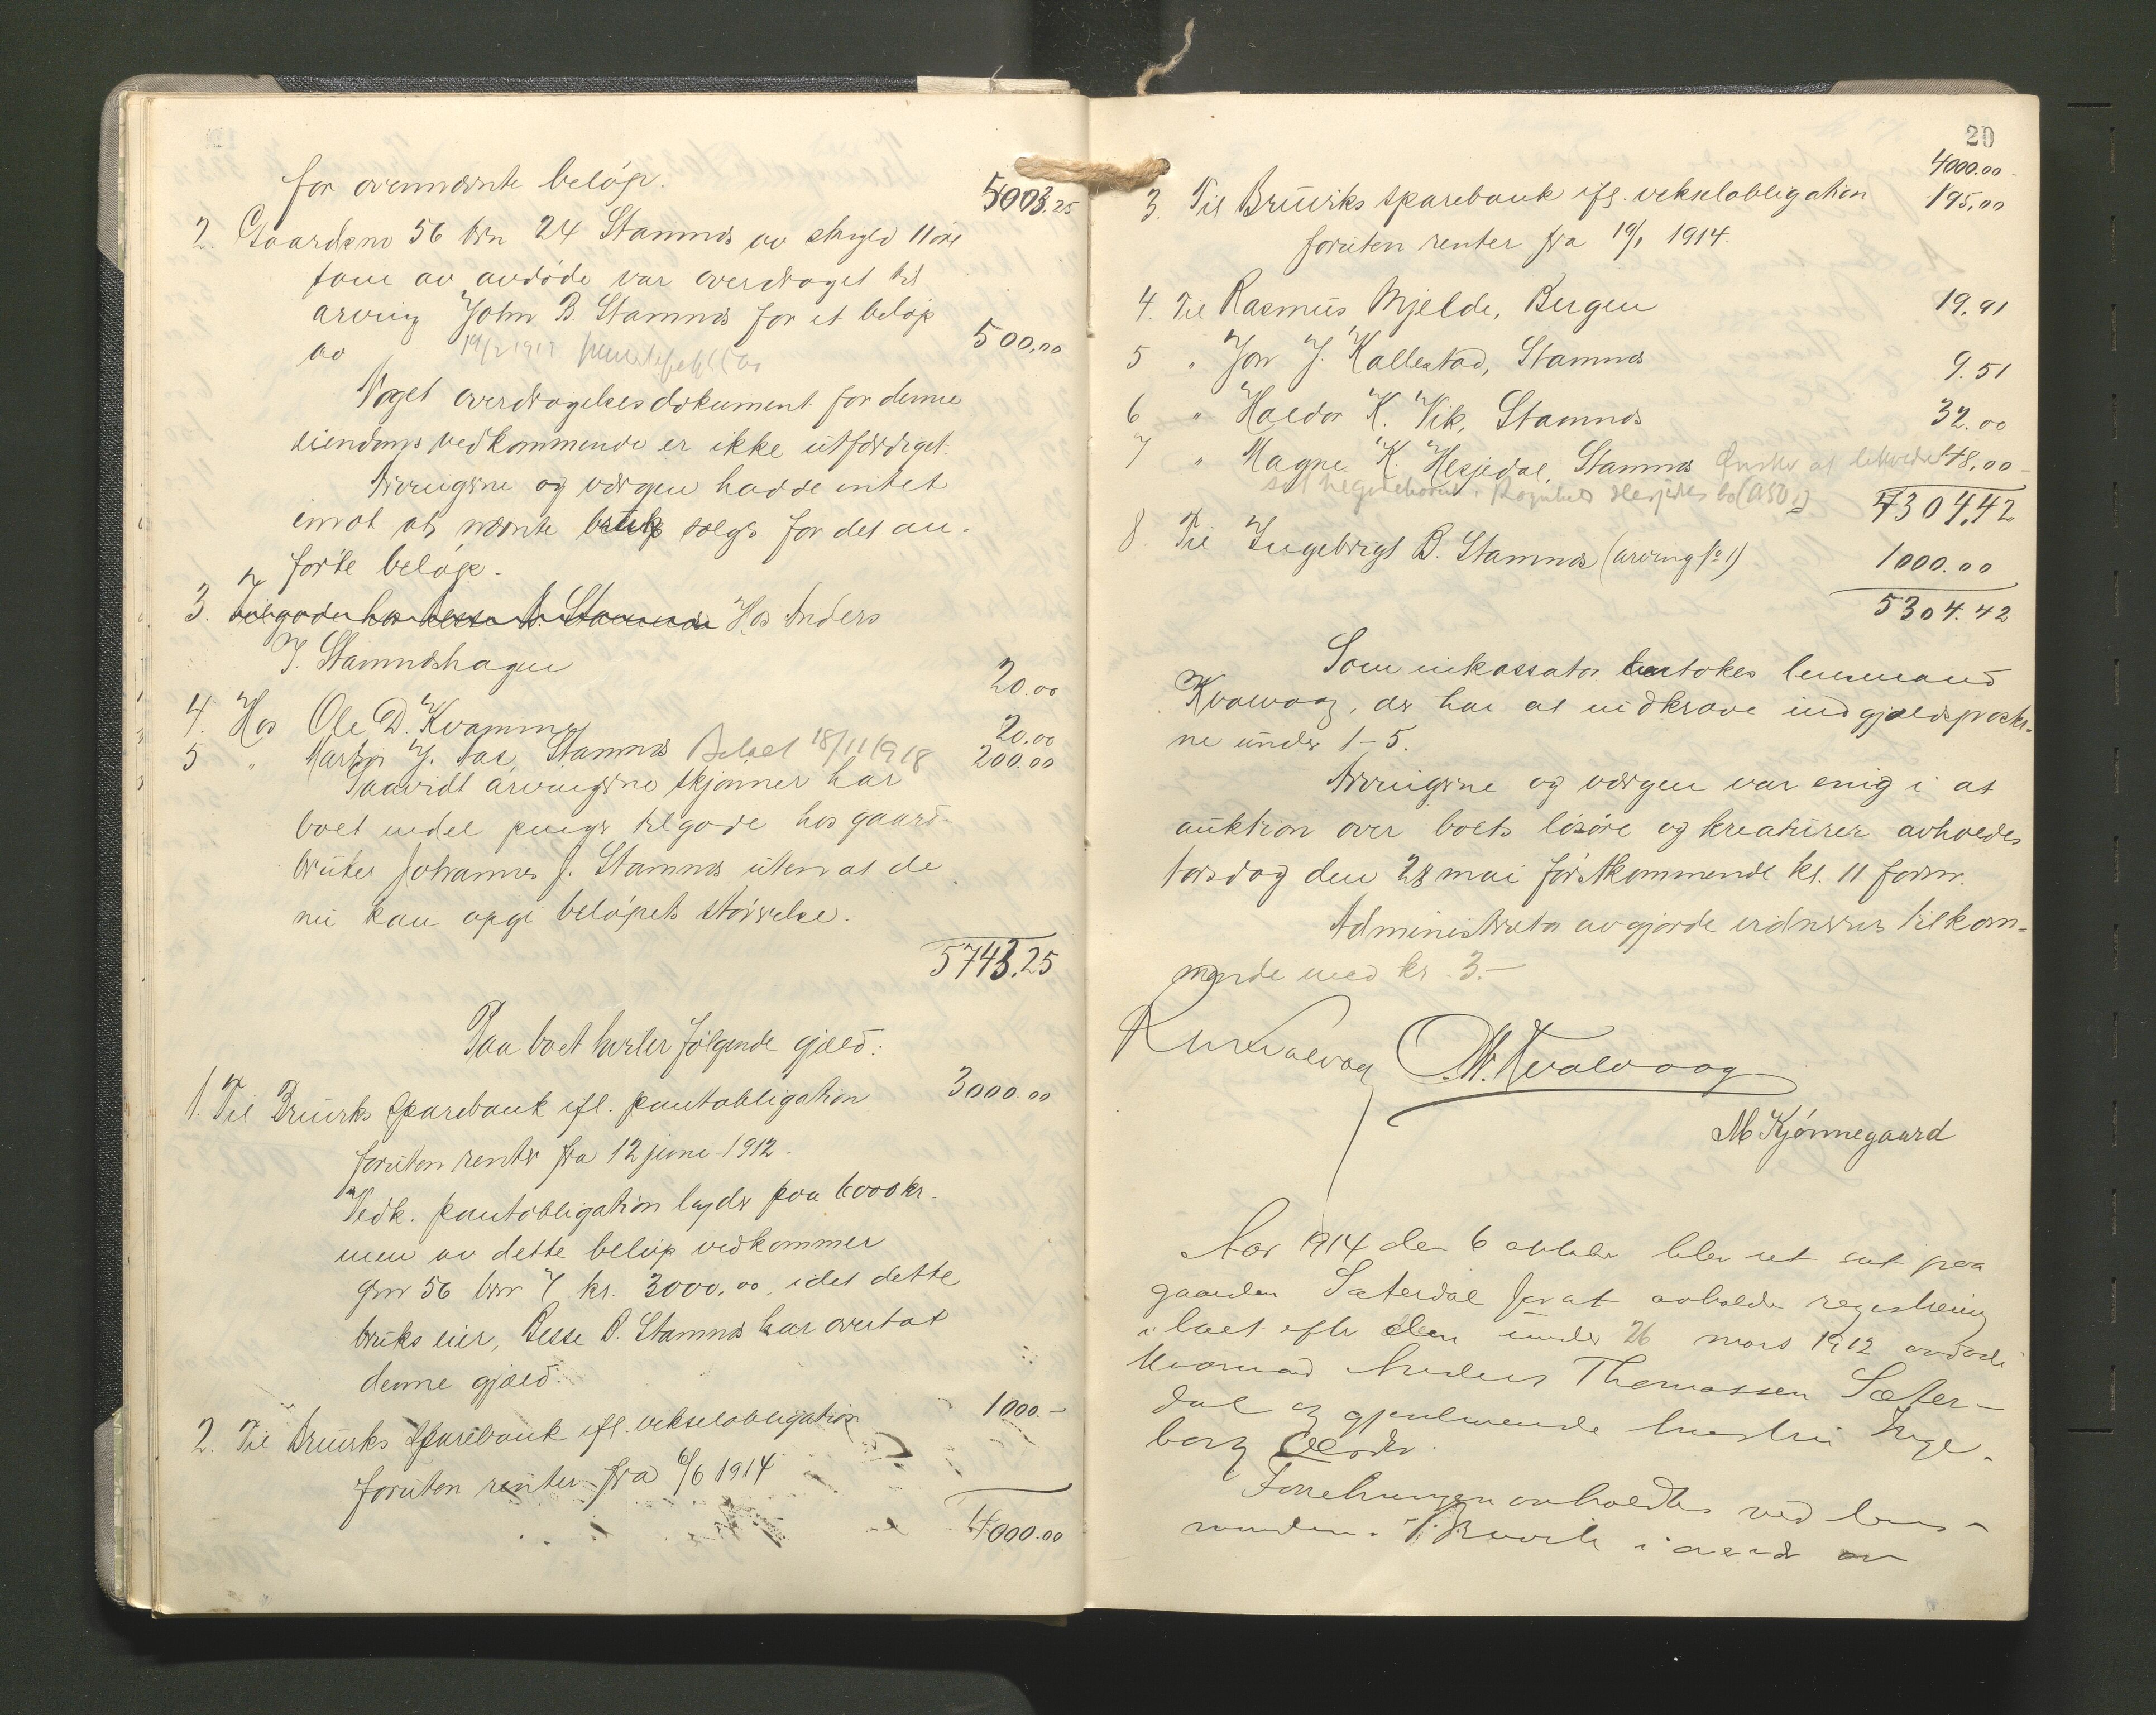 for ovennævnte beløp. 5003.25
2. Gaardsno 56 brn 24 Stamnæs av skyld 11 øre
som av avdøde var overdraget til
arving John B. Stamnæs for et beløp
av 500,00
Noget overdragelsesdokument for denne
eiendoms vedkommende er ikke utfærdiget.
Arvingerne og værgen hadde intet
imot at nævnte bruk sælges for det an-
førte beløp.
3. Tilgode hos Besse B. Stamnæs Hos Anders
J. Stamnæshagen 20.00
4. Hos Ole D. Kvamme 20.00
5 " J. Aas, Stamnæs Betalt 18/11 1918 200.00
Saavidt arvingerne skjønner har
boet endel penger tilgode hos gaard-
bruker Johannes J. Stamnæs uten at de
nu kan opgi beløpets størrelse.
5743.25
Paa boet hviler følgende gjæld:
1. Til Bruviks Sparebank ifl. pantobligation 3000.00
foruten renter fra 12 juni 1912.
Vedk. pantobligation lyder paa 6000 kr.
men av dette beløp vedkommer
gnr 56 brnr 7 kr. 3000,00, idet dette
bruks eier, Besse B. Stamnæs har overtat
denne gjæld.
2. Til Bruviks Sparebank ifl. vekselobligation 1000.-
foruten renter fra 6/6 1914
4000.00
20
4000.00
3. Til Bruviks Sparebank ifl. vekselobligation 195,00
foruten renter fra 19/1 1914.
4. Til Rasmus Mjelde, Bergen 19,91
5 " Jon J. Kallestad, Stamnæs 9.51
6 " Haldor K. Vik, Stamnæs 32.00
7 " Magne K. Hesjedal, Stamnæs Ønsker at 48,00
Hesjedals bo
4304,42
8. Til Ingebrigt B. Stamnæs (arving no 1) 1000.00
5304.42
Som inkassator antokes lensmand
Kvalvaag, der har at indkræve indgjældsposter-
ne under 1-5.
Arvingerne og værgen var enig i at
auktion over boets løsøre og kreaturer avholdes
torsdag den 28 mai førstkommende kl. 11 form.
Administrator avgjorde vidnernes tilkom-
mende med kr. 3.-
Kvalvaag M. Kvalvaag
M Kjønnegaard
Aar 1914 den 6 oktober blev ret sat paa
gaarden Sæterdal for at avholde registrering
i boet efter den under 26 mars 1912 avdøde
Anders Thomassen Sæter-
dal og gjenlevende hustru Inge-
borg
Forretningen avholdtes ved lens-
manden i Bruvik i nærvær av